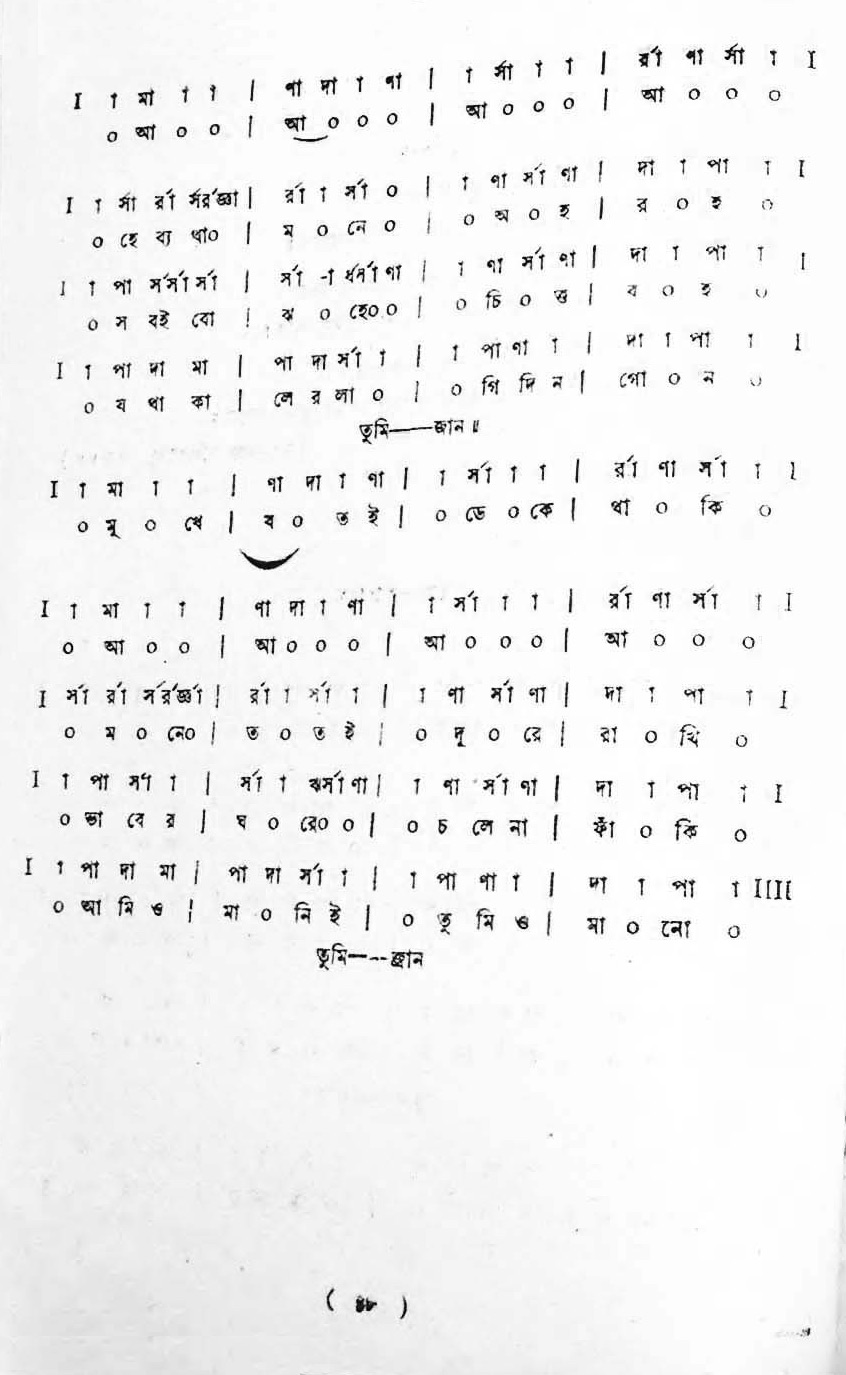 I া মা া া | ণা দা া ণা | া র্সা া া | র্রা ণা র্সা া I
০ আ ০ ০ | আ ০ ০ ০ | আ ০ ০ ০ | আ ০ ০ ০
I া র্সা র্রা র্সর্রর্জ্ঞা | র্রা া র্সা ০ | া ণা র্সা ণা | দা া পা া I
০ হে ব্য থা০ | ম ০ নে ০ | ০ অ ০ হ | র ০ হ ০
I া পা র্সর্সা র্সা | র্সা -া র্ঋর্সাণা | া ণা র্সা ণা | দা া পা া I
০ স বই বো | ঝ ০ হে০ ০ | ০ চি ০ ত্ত | ব ০ হ ০
I া পা দা মা | পা দা র্সা া | া পা ণা া | দা া পা া I
০ য থা কা | লে র লা ০ | ০ গি দি ন | গো ০ ন ০
তুমি——জ্ঞান॥
I া মা া া | ণা দা া ণা | া র্সা া া | র্রা ণা র্সা া I
০ মু ০ খে | য ০ ত ই | ০ ডে ০ কে | থা ০ কি ০
I া মা া া | ণা দা া ণা | া র্সা া া | র্রা ণা র্সা া I
০ আ ০ ০ | আ ০ ০ ০ | আ ০ ০ ০ | আ ০ ০ ০
I র্সা র্রা র্সর্রর্জ্ঞা | র্রা া র্সা া | া ণা র্সা ণা | দা া পা া I
০ ম ০ নে০ | ত ০ ত ই | ০ দূ ০ রে | রা ০ খি ০
I া পা র্সা া | র্সা া ঋর্সাণা | া ণা র্সা ণা | দা া পা া I
০ ভা বে র | ঘ ০ রে০ ০ | ০ চ লে না | ফাঁ ০ কি ০
I া পা দা মা | পা দা র্সা া | া পা ণা া | দা া পা া IIII
০ আ মি ও | মা ০ নি ই | ০ তু মি ও | মা ০ নো ০
তুমি----জ্ঞান
( ৪৮ )